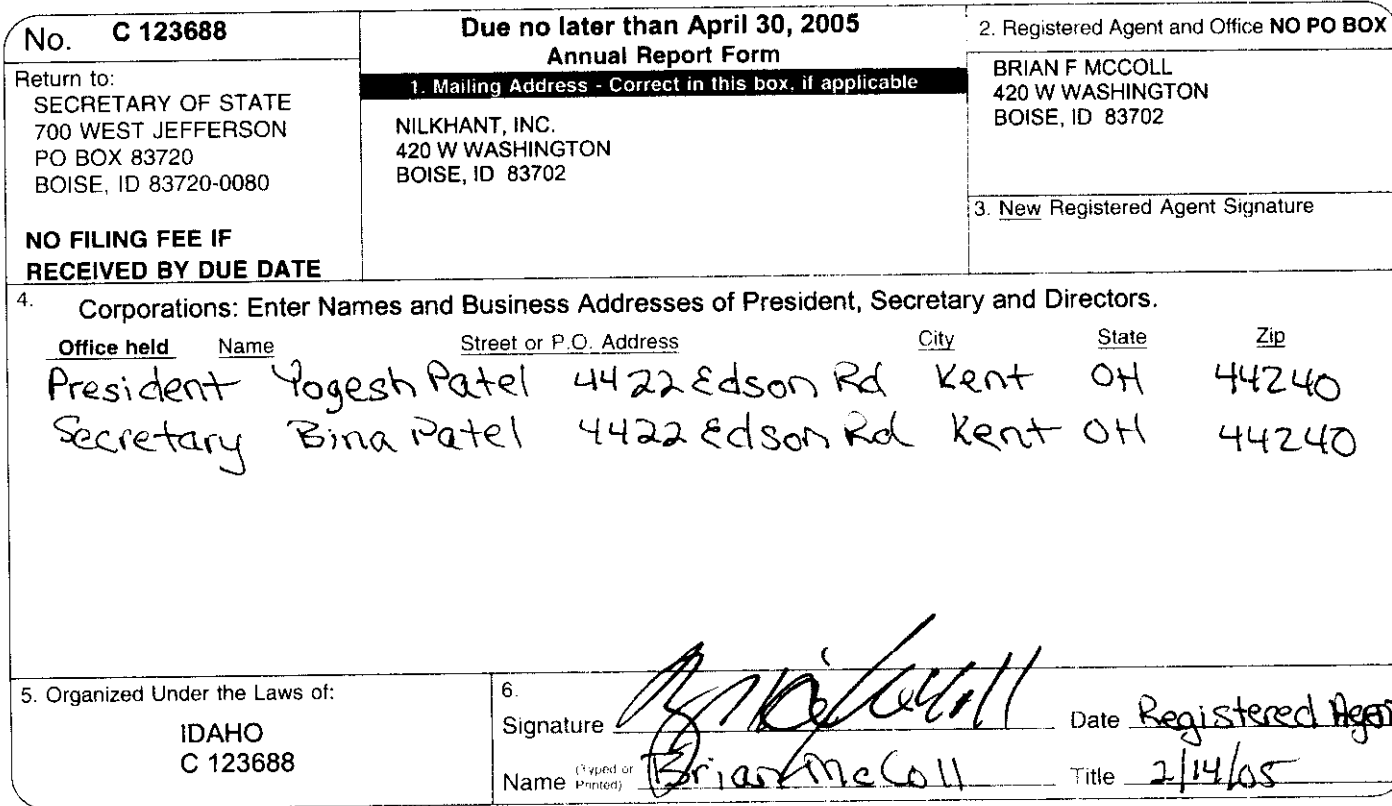 No. C 123688
Return to:
SECRETARY OF STATE
700 WEST JEFFERSON
PO BOX 83720
BOISE, ID 83720-0080
NO FILING FEE IF
RECEIVED BY DUE DATE
Due no later than April 30, 2005
Annual Report Form
1. Mailing Address - Correct in this box, if applicable
NILKHANT, INC.
420 W WASHINGTON
BOISE, ID 83702
2. Registered Agent and Office NO PO BOX
BRIAN F MCCOLL
420 W WASHINGTON
BOISE, ID 83702
3. New Registered Agent Signature
4. Corporations: Enter Names and Business Addresses of President, Secretary and Directors.
Office held Name Street or P.O. Address City State Zip
President Yogesh Patel 4422 Edson Rd Kent OH 44240
Secretary Bina Patel 4422 Edson Rd Kent OH 44240
5. Organized Under the Laws of:
IDAHO
C 123688
6.
Signature Date Registered Agent
Name (Typed or Printed) Brian McColl Title 2/14/05